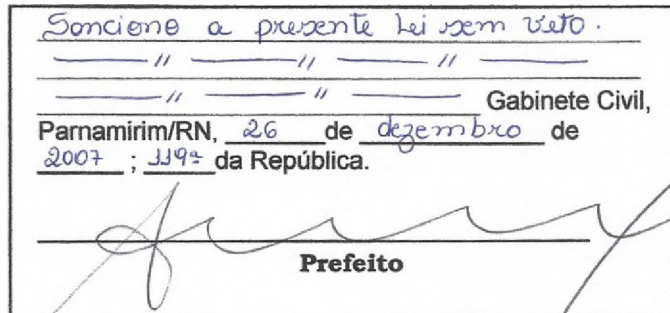 Sanciono a presente Lei sem veto.
——— // ——— // ——— // ———
——— // ——— // ——— Gabinete Civil,
Parnamirim/RN, 26 de dezembro de
2007 ; 119ª da República.
Prefeito